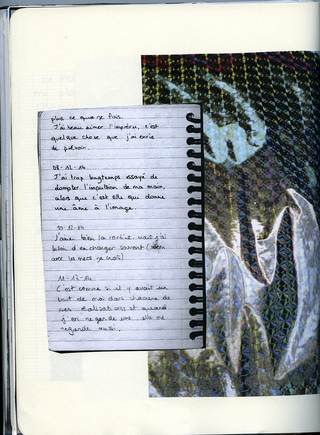 plus ce que je fais.
J'ai beau aimer l'imprévu, c'est
quelque chose que j'ai envie
de prévoir.
08-12-14
J'ai trop longtemps essayé de
dompter l'impulsion de ma main,
alors que c'est elle qui donne
une âme à l'image.
10-12-14
J'aime bien la routine, mais j'ai
besoin d'en changer souvent (
avec les mecs je crois)
11-12-14
C'est comme si il y avait un
bout de moi dans chacune de
mes réalisations et quand
j'en regarde une, elle me
regarde aussi.